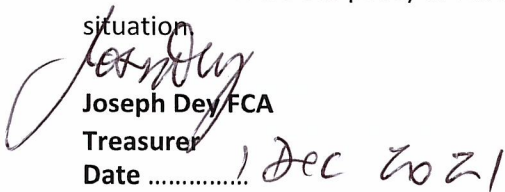 situation.
Joseph Dey FCA
Treasurer
Date .............. 1 Dec 2021